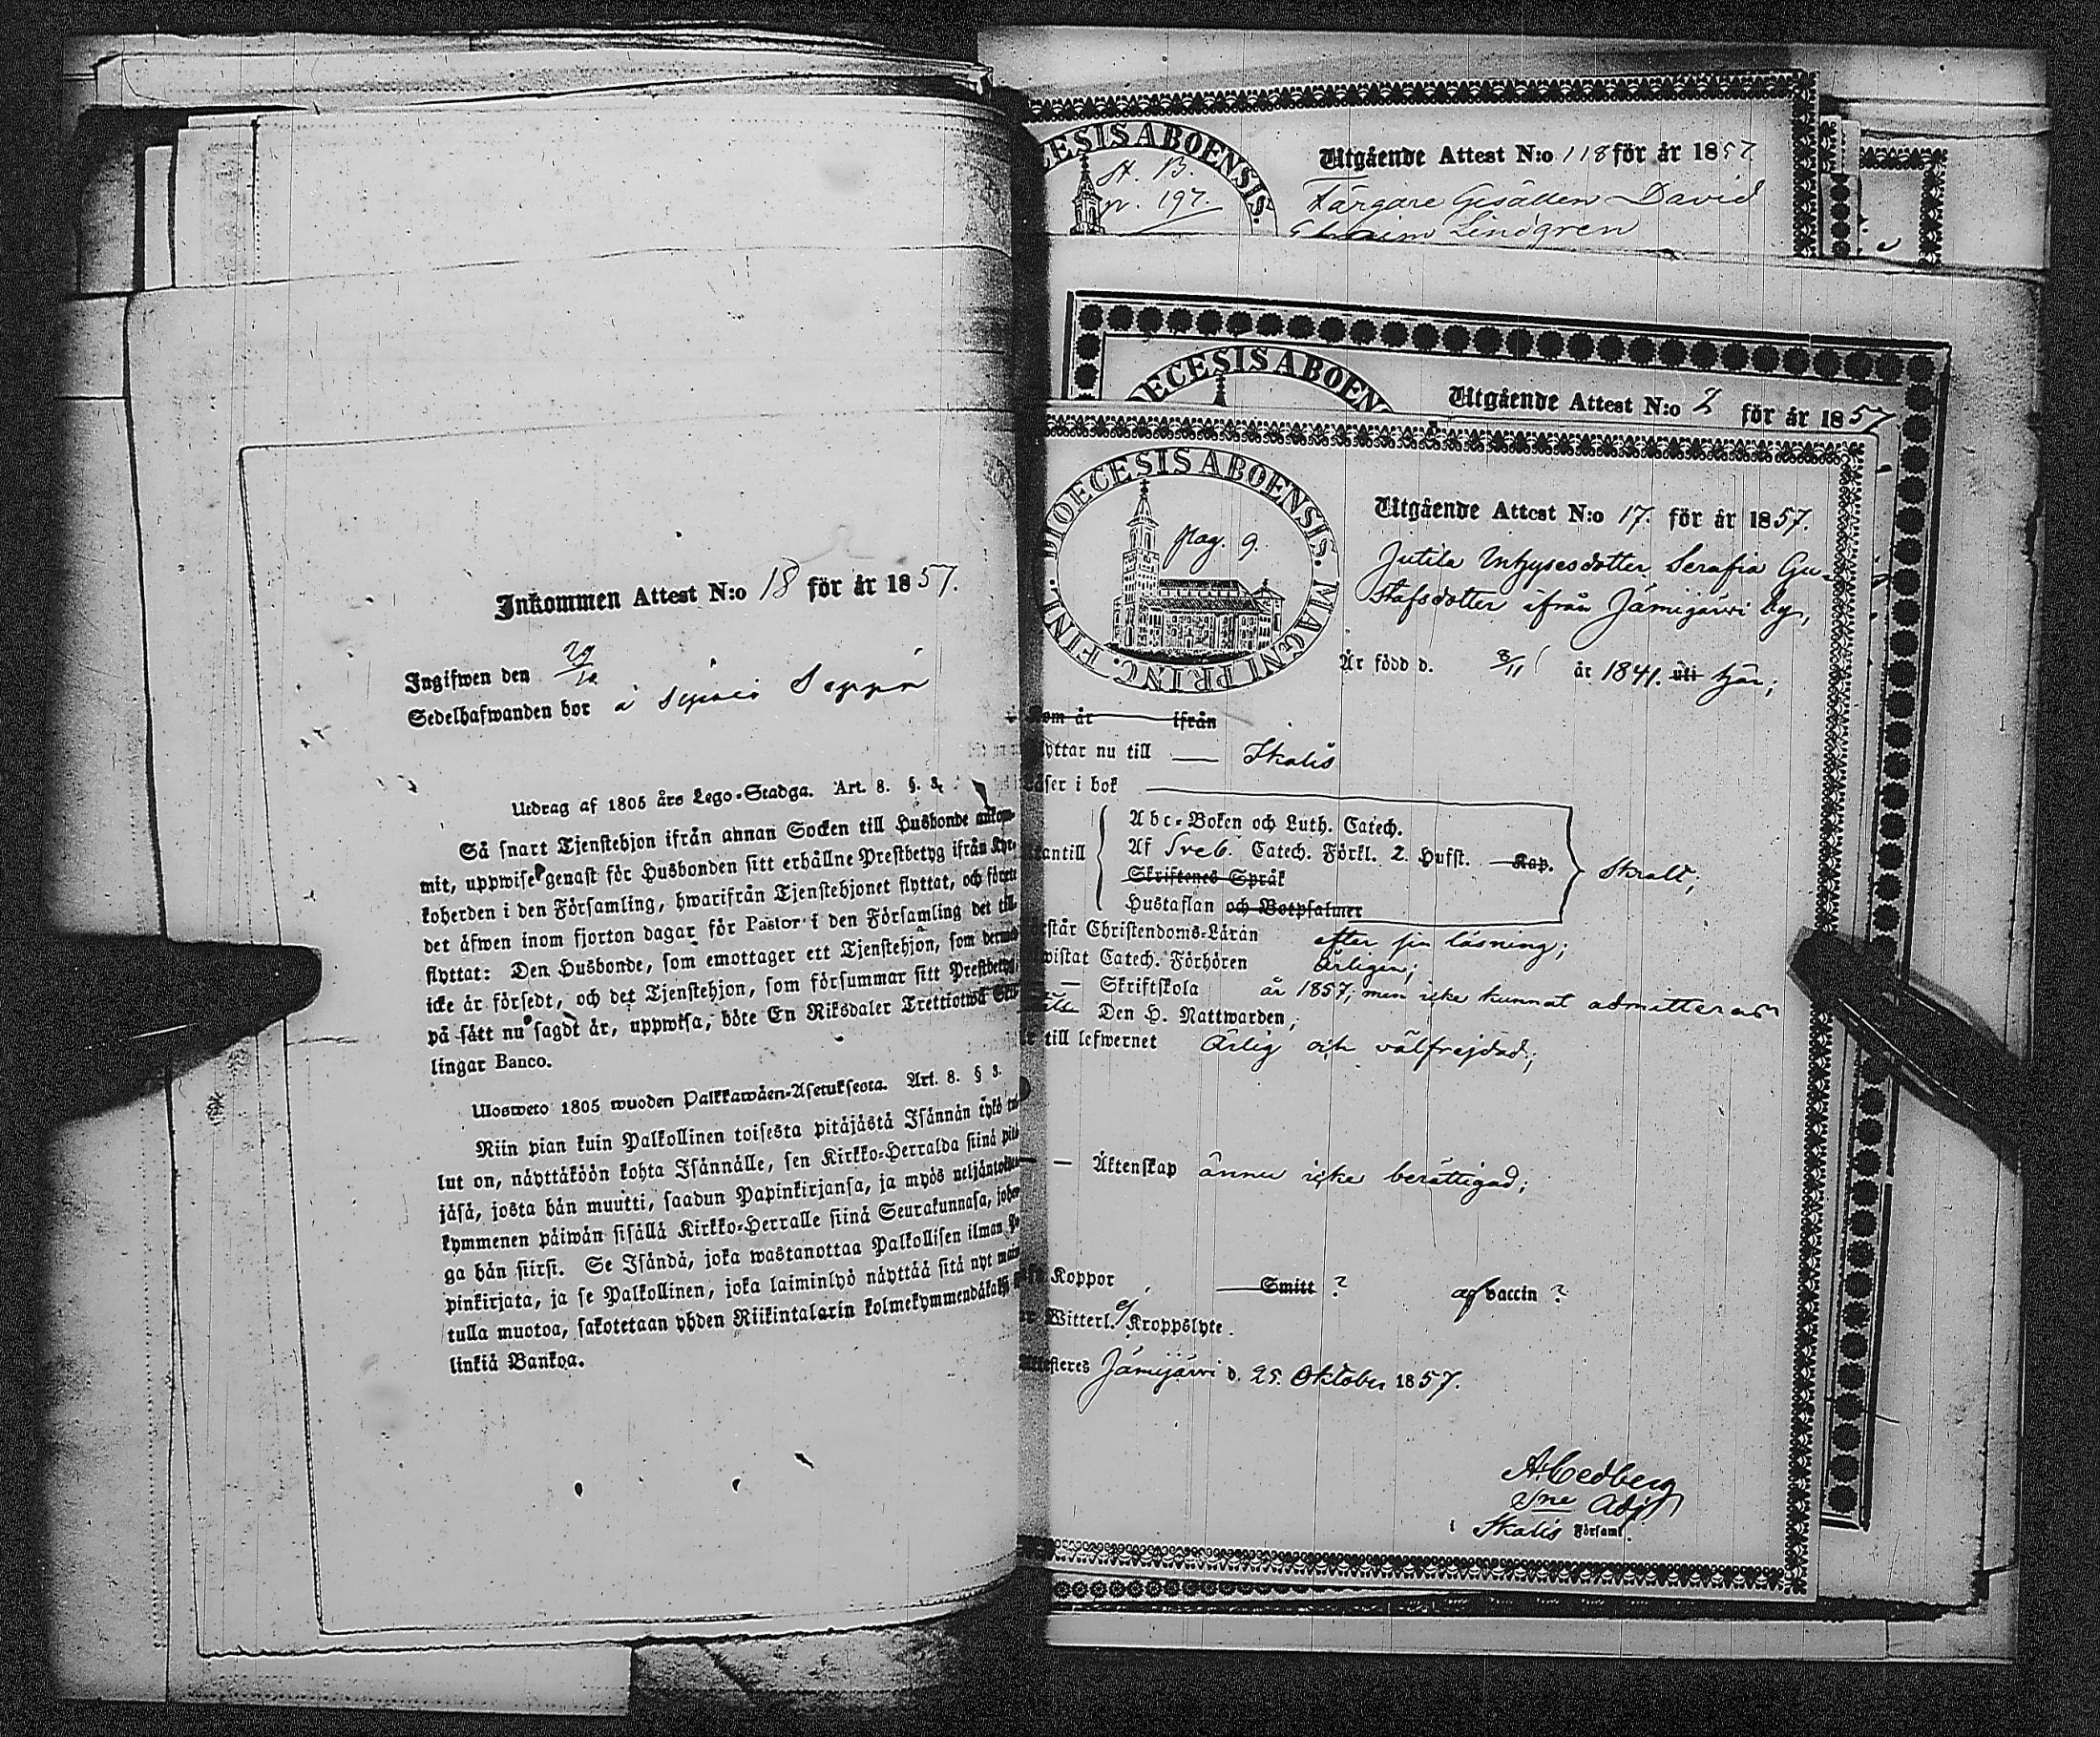 Inkommen Attest N:o 18 för år 1857.
Ingifwen den 29/10
Sedelhafwanden bor å Seppä
Utdrag af 1805 års Lego-Stadga. Art. 8. §. 3.
Så snart Tjenstehjon ifrån annan Socken till Husbonde ankom-
mit, uppwise genast för Husbonden sitt erhållne Prestbetyg ifrån Kyr-
koherden i den Församling, hwarifrån Tjenstehjonet flyttat, och förete
det äfwen inom fjorton dagar för Pastor i den Församling det till
flyttat: Den Husbonde, som emottager ett Tjenstehjon, som dermed
icke är försedt, och det Tjenstehjon, som försummar sitt Prestbetyg,
på sätt nu sagdt är, uppwisa, böte En Riksdaler Trettiotwå Skil-
lingar Banco.
Ulosweto 1805 wuoden Palkkawäen-Asetuksesta. Art. 8. § 3.
Niin pian kuin Palkollinen toisesta pitäjästä Isännän tykö tul-
lut on, näyttäköön kohta Isännälle, sen Kirkko-Herralda siinä pitä-
jäsä, josta hän muutti, saadun Papinkirjansa, ja myös neljäntoista-
kymmenen päiwän sisällä Kirkko-Herralle siinä Seurakunnasa, johon-
ga hän siirsi. Se Isändä, joka wastanottaa Palkollisen ilman Pa-
pinkirjata, ja se Palkollinen, joka laiminlyö näyttää sitä nyt mai-
tulla muotoa, sakotetaan yhden Riikintalarin kolmekymmendäkaksi
linkiä Bankoa.
DIOECESIS ABOENSIS.
St. B.
p. 197.
Utgående Attest N:o 118 för år 1857
Färgare Gesällen David
Ephraim Lindgren
DIOECESIS ABOENSIS
Utgående Attest N:o 2 för år 1857
DIOECESIS ABOENSIS. MAGNI PRINC. FINL.
pag. 9.
Utgående Attest N:o 17. för år 1857.
Jutila Inhysesdotter Serafia Gu-
stafsdotter ifrån Jämijärwi by,
Är född d. 8/11 år 1841. uti här;
Kom år ifrån
flyttar nu till — Ikalis
Läser i bok
Utantill
Abc-Boken och Luth. Catech.
Af Sveb. Catech. Förkl. 2. Hufst. Kap.
Skriftenes Språk
Hustaflan och Botpsalmer
Skralt;
Förstår Christendoms-Läran efter sin läsning;
Bewistat Catech. Förhören Årligen;
— Skriftskola år 1857; men icke kunnat admitteras
till Den H. Nattwarden;
Är till lefwernet Ärlig och välfrejdad;
— Äktenskap ännu icke berättigad;
Haft Koppor — Smitt? af vaccin?
Har Witterl. ej Kroppslyte.
Attesteres Jämijärwi d. 25. Oktober 1857.
A. Cedberg
v. Adj.
i Ikalis Församl.